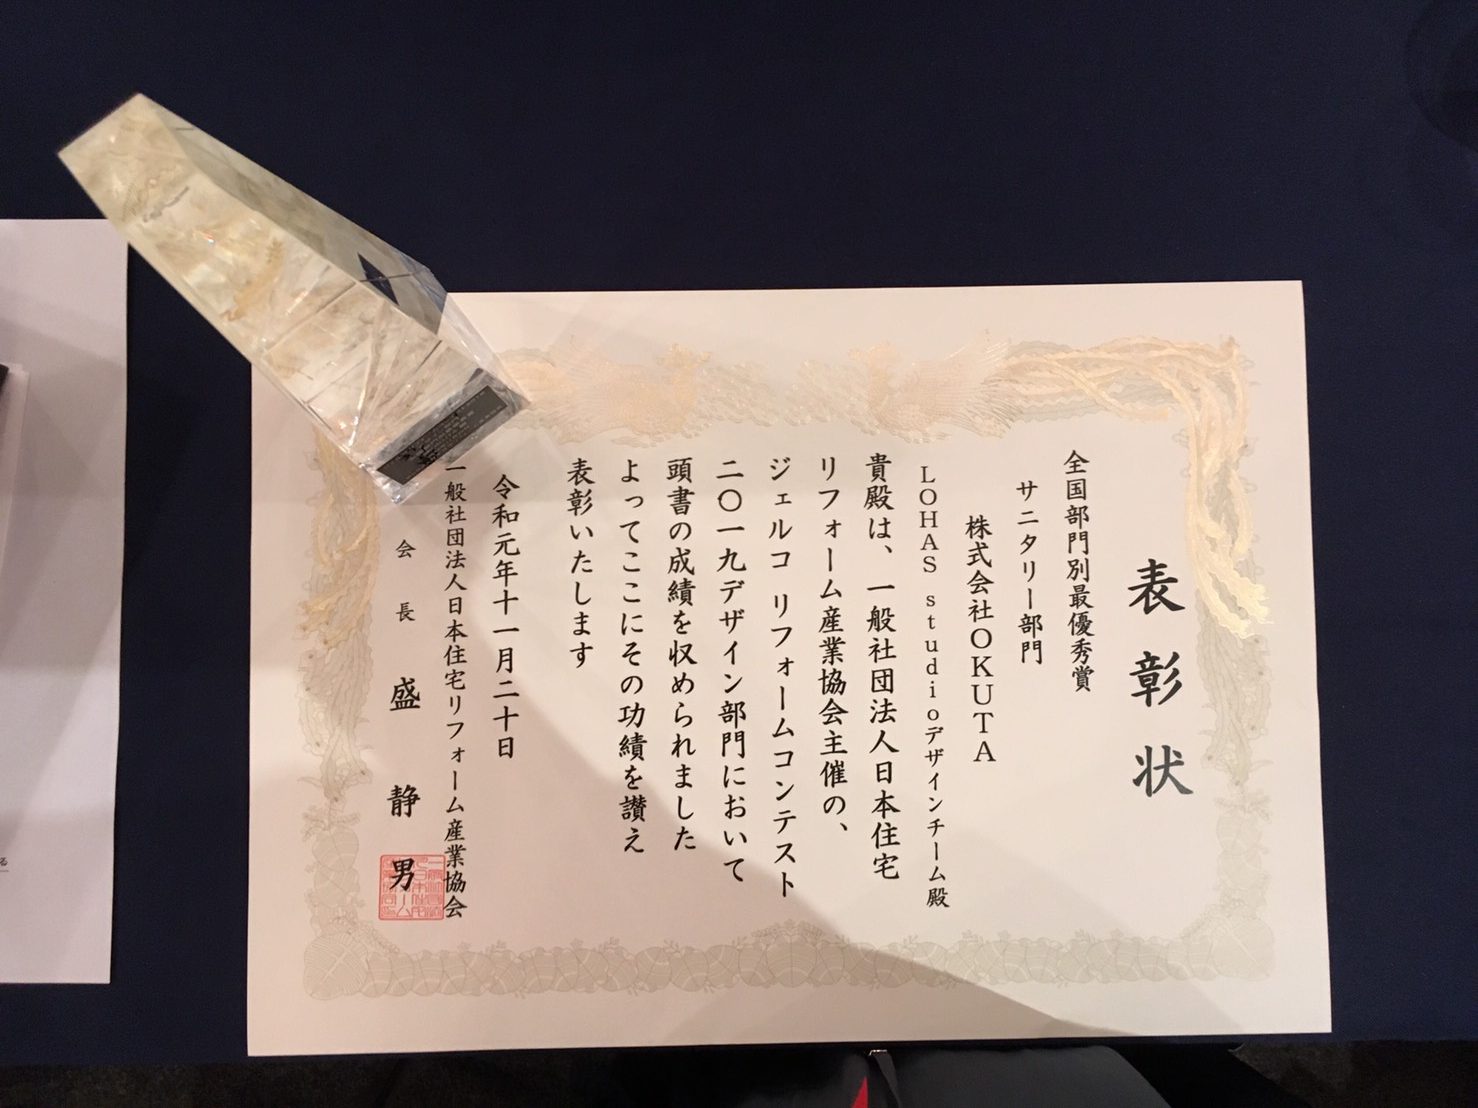 表彰状
全国部門別最優秀賞
サニタリー部門
株式会社OKUTA
LOHAS studioデザインチーム殿
貴殿は、一般社団法人日本住宅
リフォーム産業協会主催の、
ジェルコ リフォームコンテスト
二〇一九デザイン部門において
頭書の成績を収められました
よってここにその功績を讃え
表彰いたします
令和元年十一月二十日
一般社団法人日本住宅リフォーム産業協会
会長 盛静男
る